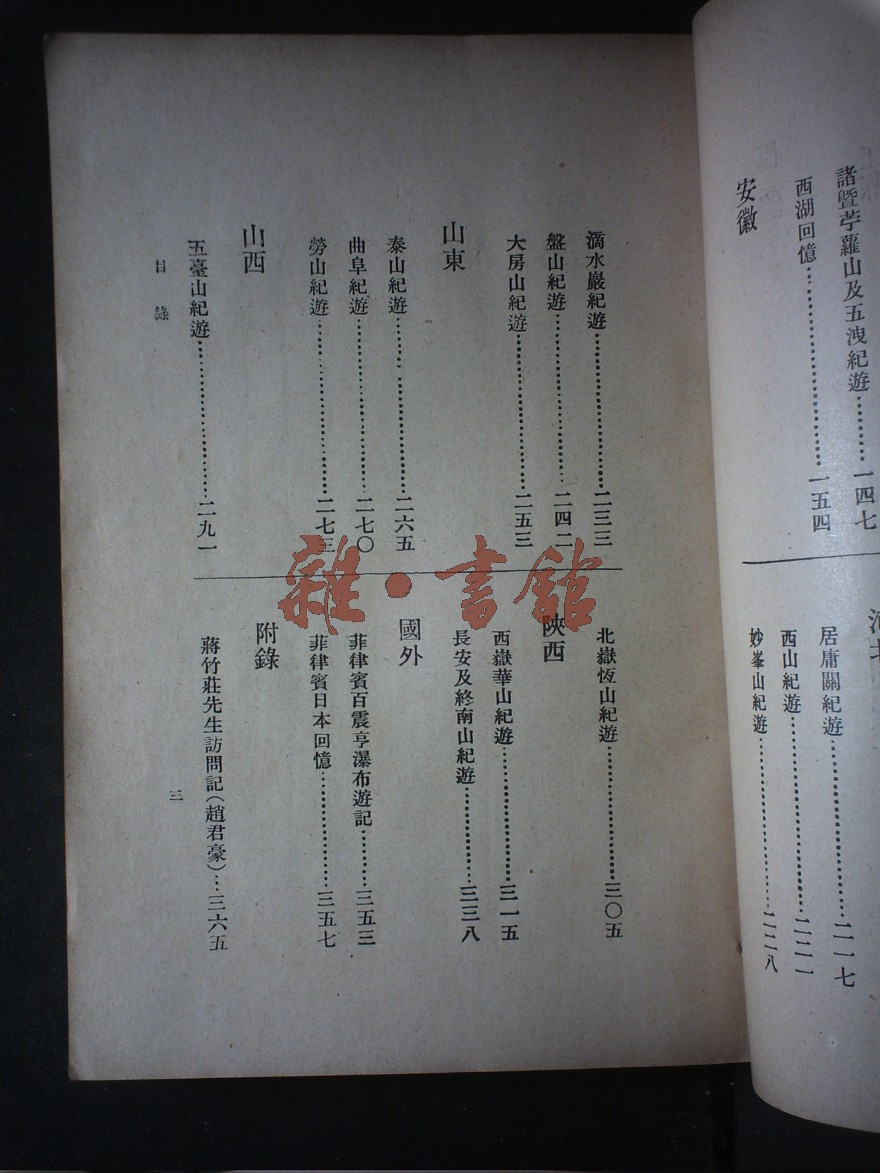 諸暨苧蘿山及五洩紀遊…………一四七
西湖回憶…………一五四
安徽
河北
居庸關紀遊…………二一七
西山紀遊…………二二一
妙峯山紀遊…………二二八
滴水巖紀遊…………二三三
盤山紀遊…………二四二
大房山紀遊…………二五三
山東
泰山紀遊…………二六五
曲阜紀遊…………二七〇
勞山紀遊…………二七三
山西
五臺山紀遊…………二九一
北嶽恆山紀遊…………三〇五
陝西
西嶽華山紀遊…………三一五
長安及終南山紀遊…………三三八
國外
菲律賓百震亨瀑布遊記…………三五三
菲律賓日本回憶…………三五七
附錄
蔣竹莊先生訪問記(趙君豪)…三六五
目錄
三
雜·書館